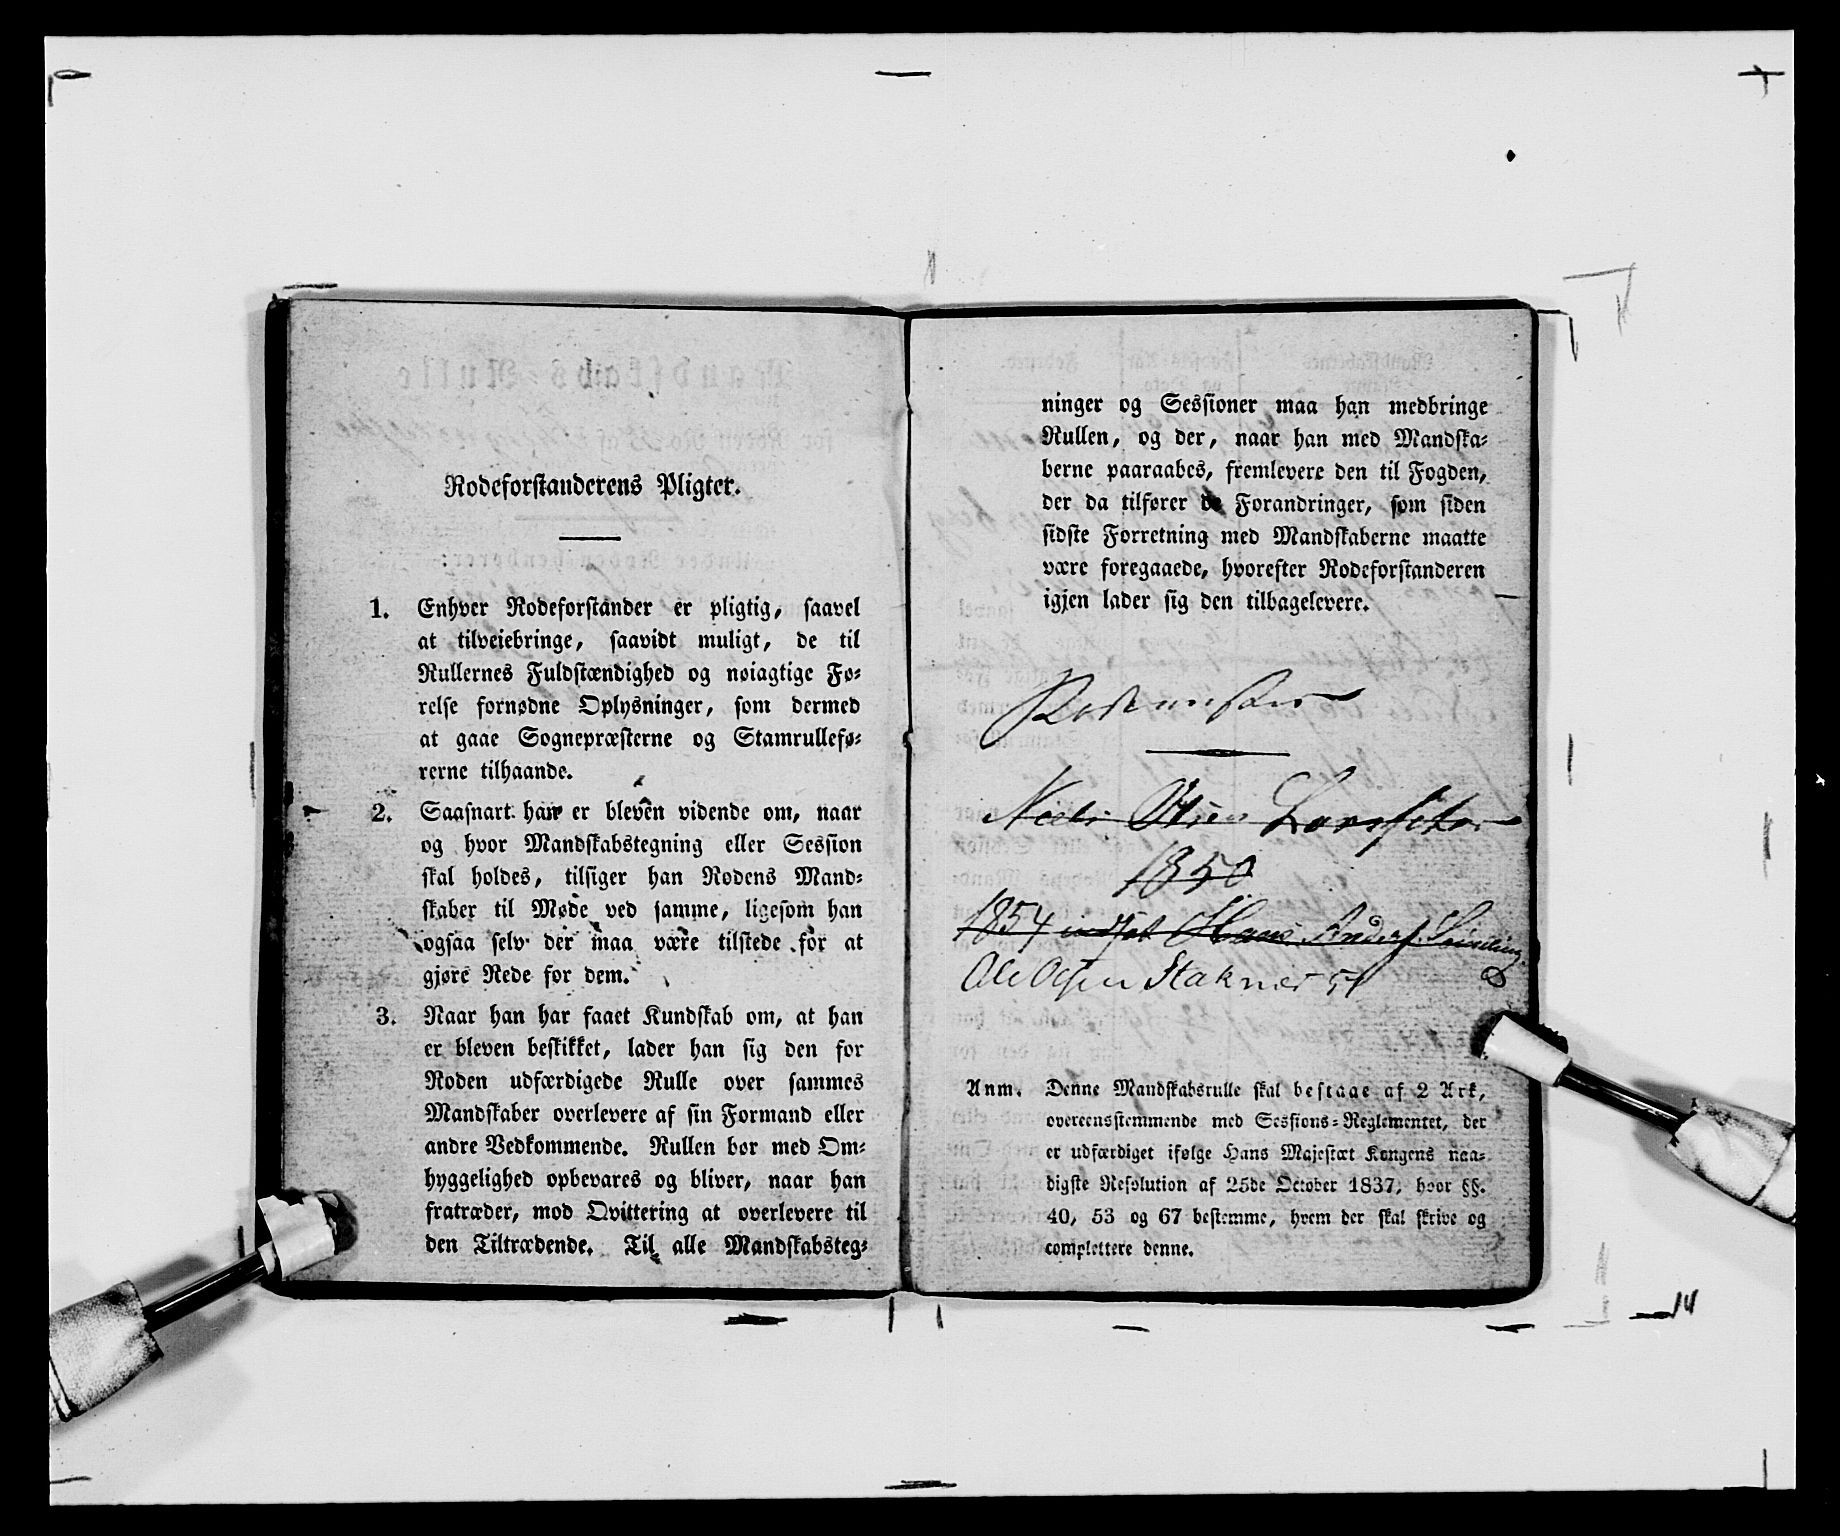 Rodeforstanderens Pligter.
1. Enhver Rodeforstander er pligtig, saavel
at tilveiebringe, saavidt muligt, de til
Rullernes Fuldstændighed og nøiagtige Fø-
relse fornødne Oplysninger, som dermed
at gaae Sognepræsterne og Stamrullefø-
rerne tilhaande.
2. Saasnart han er bleven vidende om, naar
og hvor Mandskabstegning eller Session
skal holdes, tilsiger han Rodens Mand-
skaber til Møde ved samme, ligesom han
ogsaa selv der maa være tilstede for at
gjøre Rede for dem.
3. Naar han har faaet Kundskab om, at han
er bleven beskikket, lader han sig den for
Roden udfærdigede Rulle over sammes
Mandskaber overlevere af sin Formand eller
andre Vedkommende. Rullen bør med Om-
hyggelighed opbevares og bliver, naar han
fratræder, mod Qvittering at overlevere til
den Tiltrædende. Til alle Mandskabsteg-
ninger og Sessioner maa han medbringe
Rullen, og der, naar han med Mandska-
berne paaraabes, fremlevere den til Fogden,
der da tilfører de Forandringer, som siden
sidste Forretning med Mandskaberne maatte
være foregaaede, hvorefter Rodeforstanderen
igjen lader sig den tilbagelevere.
1850
1854 indsat Hans Anders
Ole Olsen Stakner 54
Anm. Denne Mandskabsrulle skal bestaae af 2 Ark,
overeensstemmende med Sessions-Reglementet, der
er udfærdiget ifølge Hans Majestæt Kongens naa-
digste Resolution af 25de October 1837, hvor §§.
40, 53 og 67 bestemme, hvem der skal skrive og
complettere denne.
14